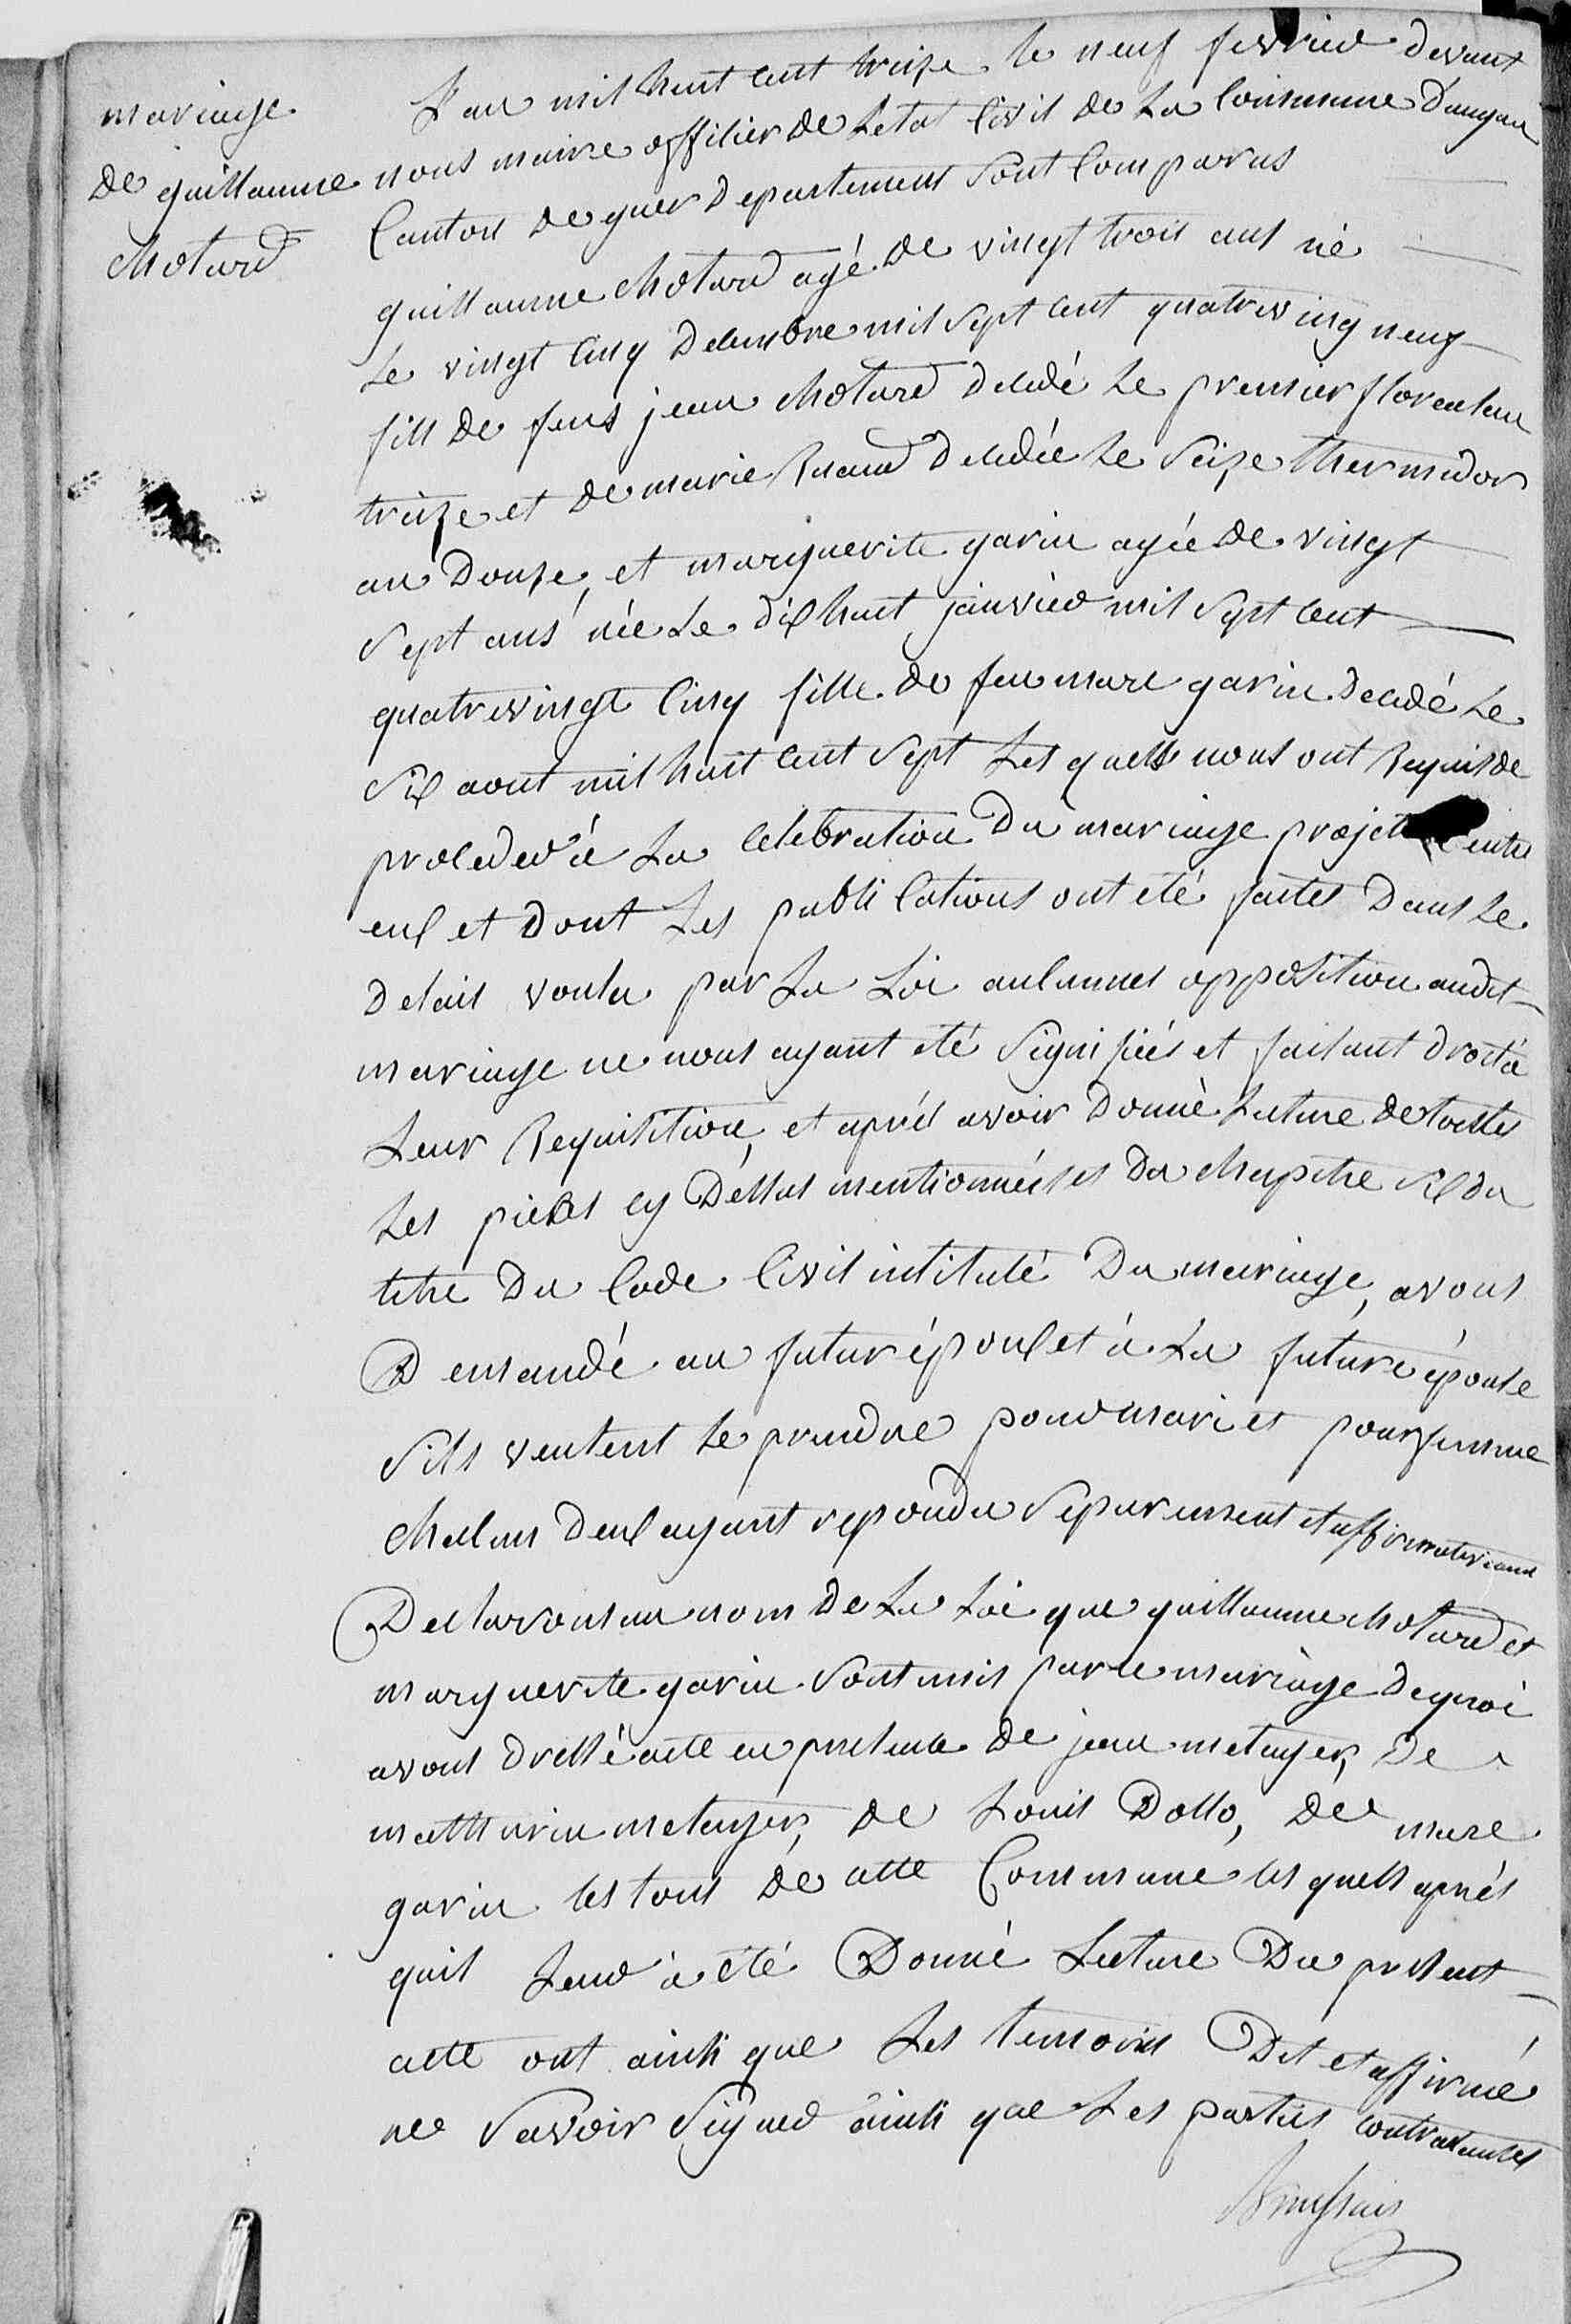 mariage
de guillaume
Motard
L'an mil huit cent treize le neuf fevrier devant
nous maire officier de letat civil de La Commune D'augan
Canton de guer Departement sont Comparus
guillaume Motard agé de vingt trois ans né
Le vingt cinq Decembre mil sept cent quatrevingt neuf
fils de feus jean Motard decedé Le premier floreal an
treize et de marie Ruaud decedée Le seize thermidor
an douze, et marguerite garin agée de vingt
sept ans née Le dix huit janvier mil sept cent
quatrevingt cinq fille de feu marc garin decedé Le
six aout mil huit cent sept Les quels nous ont Requis de
proceder à La celebration du mariage projeté entre
eux et dont Les publications ont été faites dans Le
delais voulu par La Loi aucunnes opposition audit
mariage ne nous ayant été signifiés et faisant droit à
Leur Requisition, et aprés avoir donné Lecture de toutes
Les pieces cy dessus mentionnées et du chapitre six du
titre du Code Civil intitulé Du mariage, avons
Demandé au futur époux et à La future épouse
s'ils veulent se prendre pour mari et pour femme
chacun deux ayant repondu separement et affirmativement
Declarons au nom de La Loi que guillaume Motard et
marguerite garin sont unis par le mariage de quoi
avons dressé acte en presence de jean metayer, de
mathurin metayer, de Louis Dollo, de marc
garin les tous de cette Commune les quels aprés
quil Leur à été Donné Lecture Du present
acte ont ainsi que Les temoins Dit et affirmé
ne savoir signer ainsi que Les parties contractantes